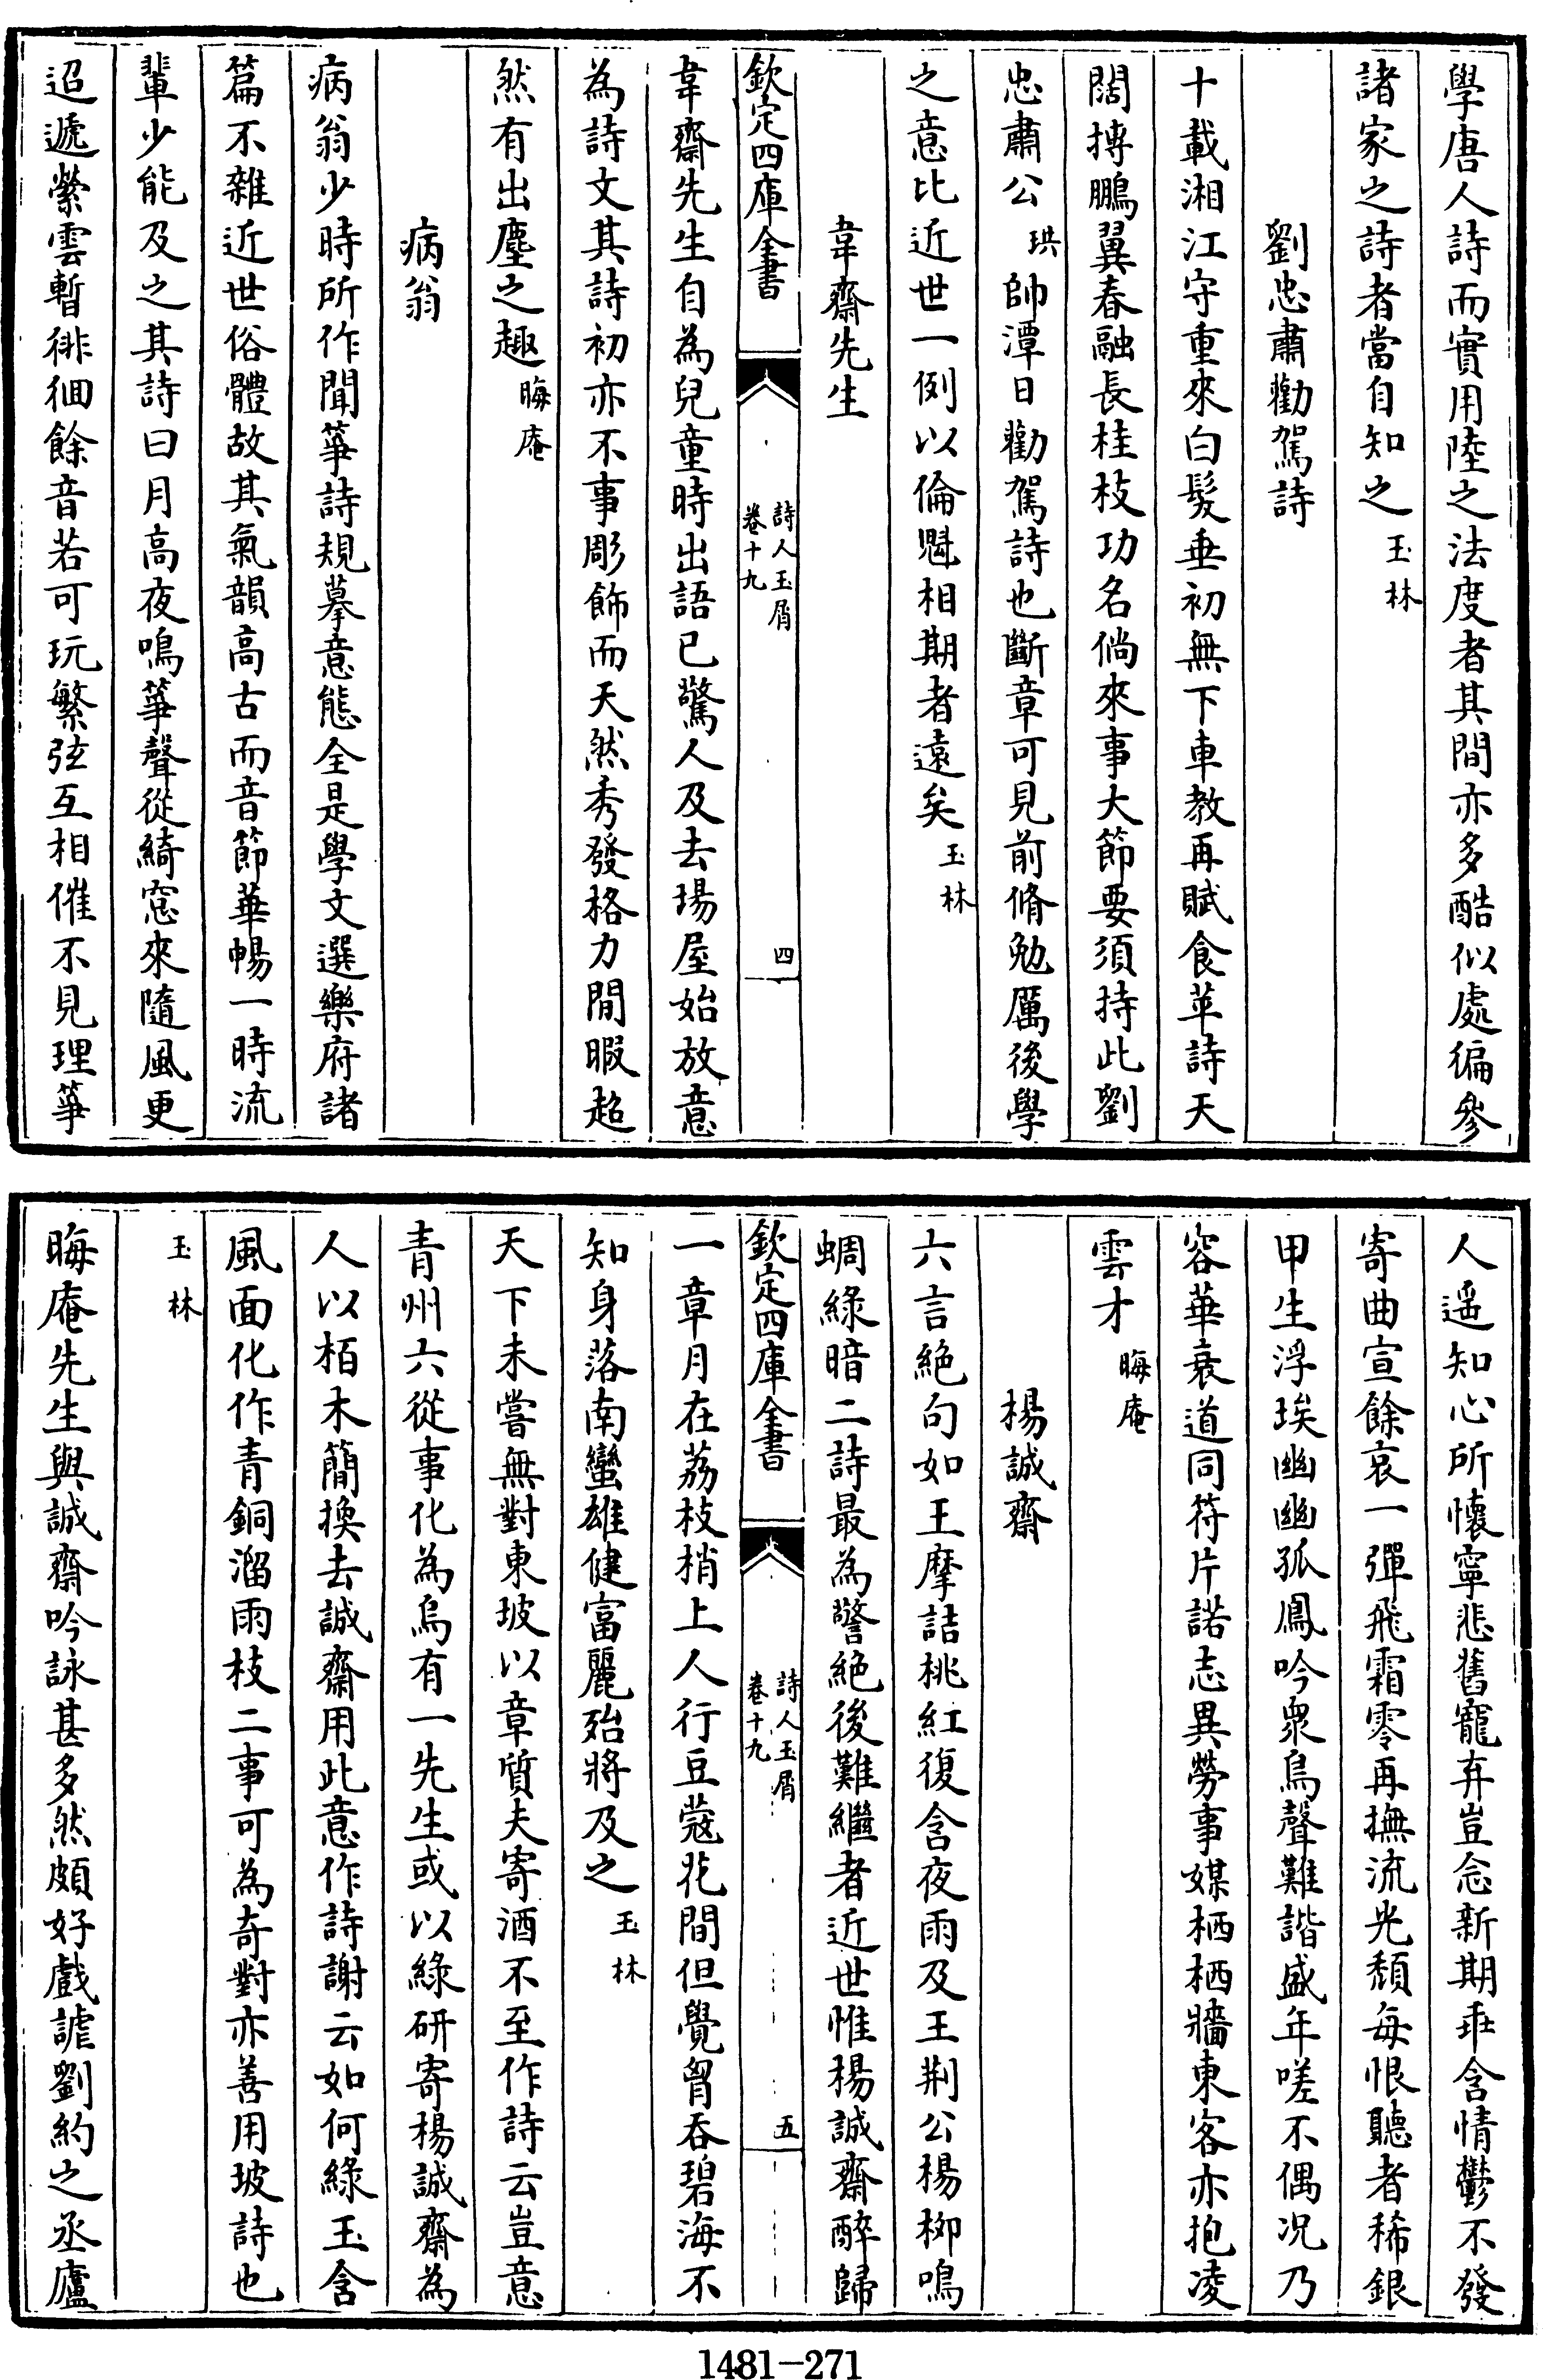 學唐人詩而實用陸之法度者其間亦多酷似處徧參
諸家之詩者當自知之玉林
劉忠肅勸駕詩
十載湘江守重來白髮垂初無下車教再賦食苹詩天
闊摶鵬翼春融長桂枝功名倘來事大節要須持此劉
忠肅公珙帥潭日勸駕詩也斷章可見前脩勉厲後學
之意比近世一例以倫魁相期者遠矣玉林
韋齋先生
欽定四庫全書
詩人玉屑
卷十九
四
韋齋先生自為兒童時出語已驚人及去場屋始放意
為詩文其詩初亦不事彫飾而天然秀發格力閒暇超
然有出塵之趣晦庵
病翁
病翁少時所作聞箏詩規摹意態全是學文選樂府諸
篇不雜近世俗體故其氣韻高古而音節華暢一時流
輩少能及之其詩曰月高夜鳴箏聲從綺窓來隨風更
迢遞縈雲暫徘徊餘音若可玩繁弦互相催不見理箏
人遥知心所懷寧悲舊寵弃豈念新期乖含情鬱不發
寄曲宣餘哀一彈飛霜零再撫流光頹每恨聽者稀銀
甲生浮埃幽幽孤鳳吟衆鳥聲難諧盛年嗟不偶况乃
容華衰道同符片諾志異勞事媒栖栖牆東客亦抱凌
雲才晦庵
楊誠齋
六言絶句如王摩詰桃紅復含夜雨及王荆公楊栁鳴
蜩綠暗二詩最為警絶後難繼者近世惟楊誠齋醉歸
欽定四庫全書
詩人玉屑
卷十九
五
一章月在荔枝梢上人行豆蔻花間但覺胷吞碧海不
知身落南蠻雄健富麗殆將及之玉林
天下未嘗無對東坡以章質夫寄酒不至作詩云豈意
青州六從事化為烏有一先生或以綠研寄楊誠齋為
人以栢木簡換去誠齋用此意作詩謝云如何綠玉含
風面化作青銅溜雨枝二事可為奇對亦善用坡詩也
玉林
晦庵先生與誠齋吟詠甚多然頗好戲謔劉約之丞廬
1481-271